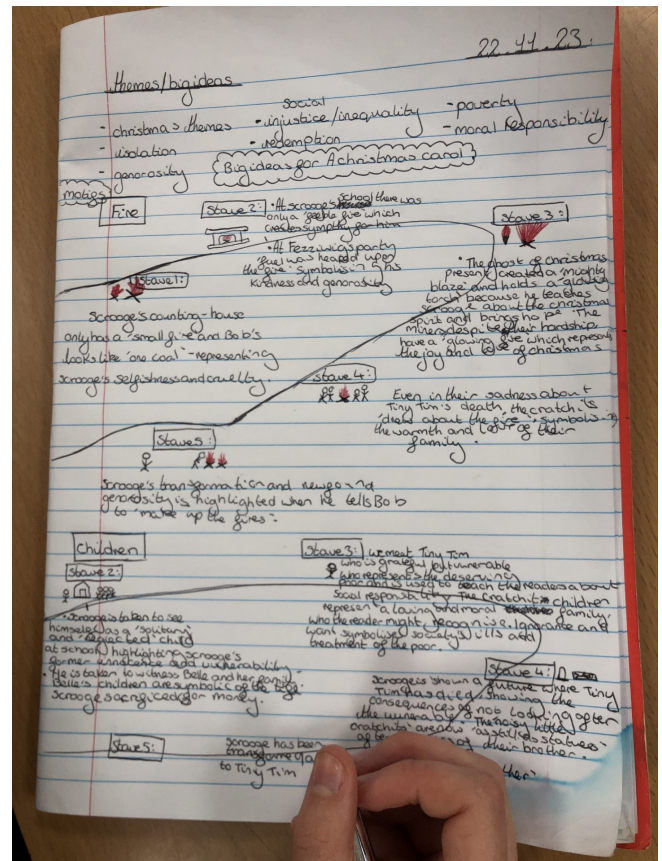 22.11.23.
themes/bigideas
- christmas themes
- isolation
- generosity
social
- injustice/inequality
- redemption
- poverty
- moral Responsibility
Big ideas for A christmas carol
motifs
Fire
Stave 1:
Scrooge's counting-house
only has a 'small fire' and Bob's
looks like 'one coal' - representing
scrooge's selfishness and cruelty.
Stave 2:
• At scrooge's school there was
only a 'feeble fire' which
creates sympathy for him
• At Fezziwig's party
'fuel was heaped upon
the fire' symbolising his
kindness and generosity
Stave 3:
• The ghost of christmas
present created a 'mighty
blaze' and holds a 'glowing
torch' because he teaches
scrooge about the christmas
spirit and brings hope. The
miners, despite their hardship
have a 'glowing fire' which represents
the joy and love of christmas
Stave 4:
Even in their sadness about
Tiny Tim's death, the cratchits
'drew about the fire', symbolising
the warmth and love of their
family.
Stave 5:
Scrooge's transformation and newfound
generosity is highlighted when he tells Bob
to 'make up the fires'.
Children
Stave 2:
• Scrooge is taken to see
himself as a 'solitary'
and 'neglected' child
at school, highlighting scrooge's
former innocence and vulnerability.
• He is taken to witness Belle and her family.
Belle's children are symbolic of the
scrooge sacrificed for money.
Stave 3:
we meet Tiny Tim
who is grateful but vulnerable
who represents the deserving
poor and is used to teach the readers about
social responsibility. The cratchit children
represent a loving and moral family
who the reader might recognise. Ignorance and
want symbolise society's ills and
treatment of the poor.
Stave 4:
Scrooge is shown a future where Tiny
Tim has died, showing the
consequences of not looking after
the vulnerable. The 'noisy little
cratchits' are now 'as still as statues'
of their brother.
Stave 5:
Scrooge has been
to Tiny Tim